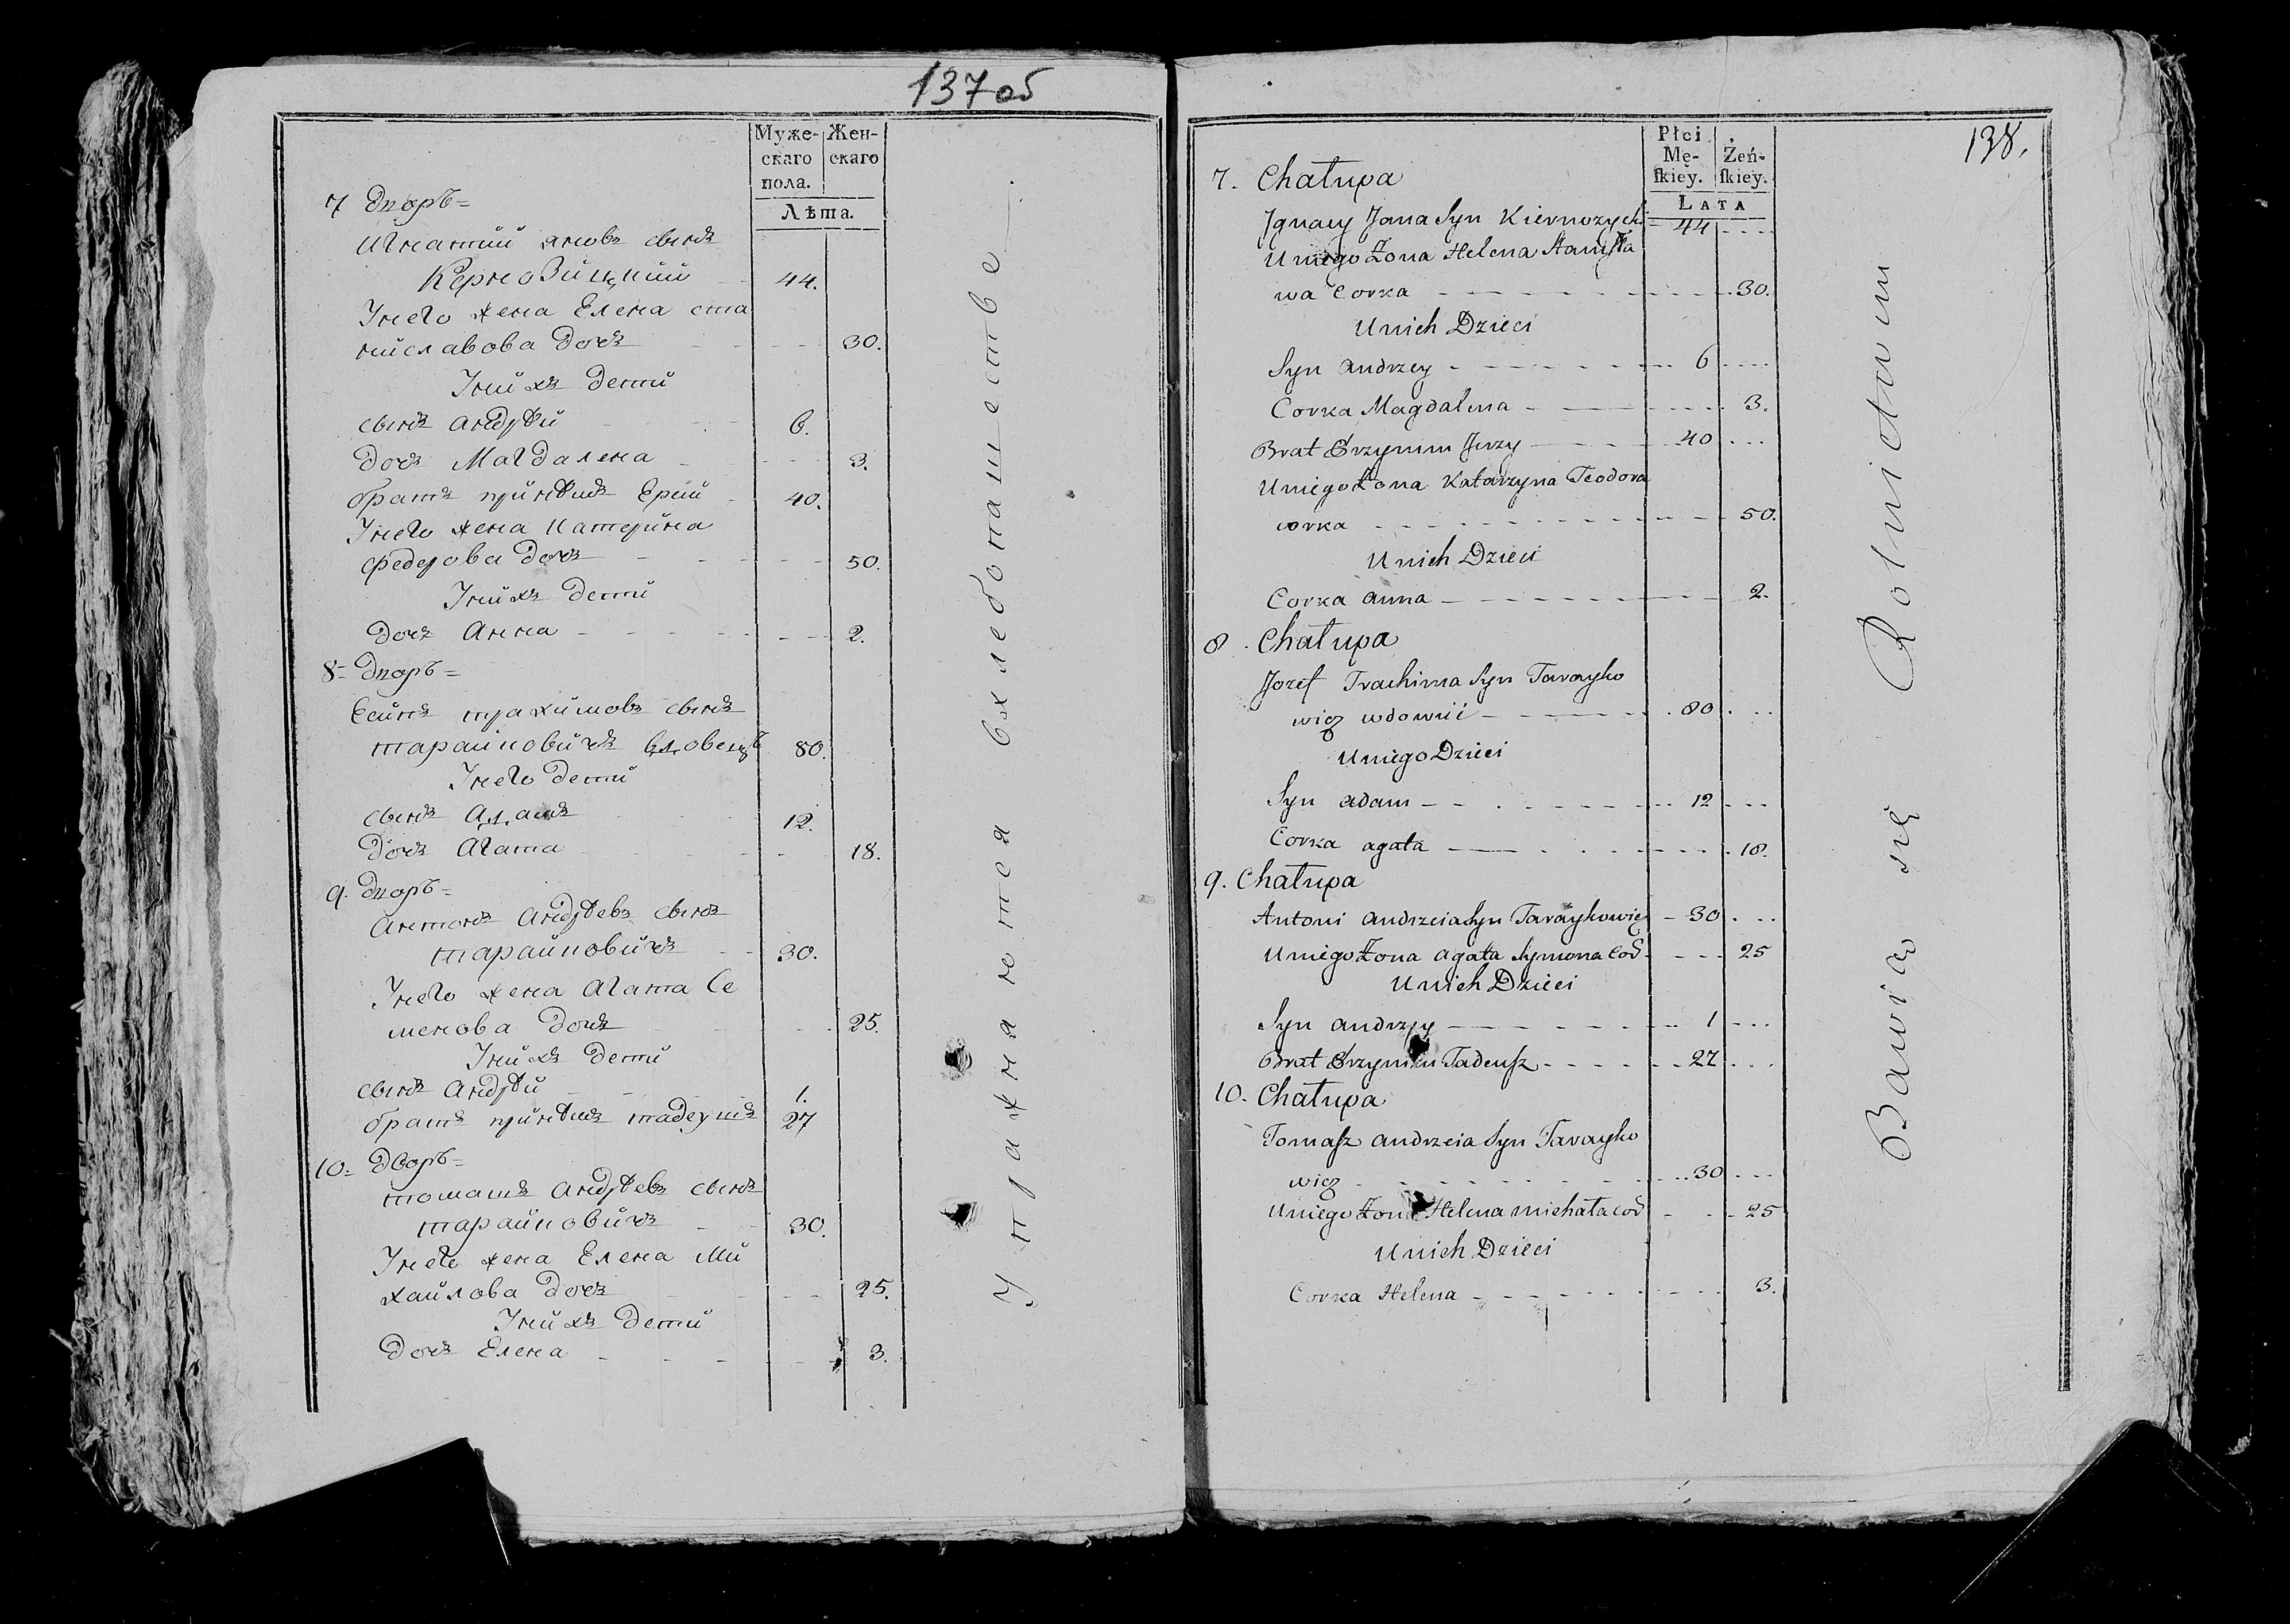 137 об
Муже-
скаго
пола.
Жен-
скаго
Лѣта.
7 Дворъ =
Игнатий яновъ сынъ
Керновицкий 44.
У него жена Елена ста
ниславова дочь 30.
У нихъ дети
сынъ андрѣй 6.
дочь Магдалена 3.
братъ при нѣмъ Ерий 40.
У него жена катерина
федорова дочь 50.
У нихъ дети
дочь Анна 2.
8 = Дворъ =
Есипъ трахимовъ сынъ
тарайковичъ вдовецъ 80.
У него дети
сынъ адамъ 12.
дочь Агата 18.
9. Дворъ =
Антонъ андрѣевъ сынъ
тарайковичъ 30.
У него жена Агата Се
менова дочь 25.
У нихъ дети
сынъ андрѣй 1.
братъ при нѣмъ тадеушъ 27
10 = Дворъ =
томашъ андрѣевъ сынъ
тарайковичъ 30.
У него жена Елена Ми
хайлова дочь 25.
У нихъ дети
дочь Елена 3.
Упражняются в хлебопашестве
138.
Płci
Mę-
ſkiey.
Żeń-
ſkiey.
LATA
7. Chałupa
Jgnacy Jana Syn 44
U niego Żona Helena Stanisła
wa Corka 30.
U nich Dzieci
Syn Andrzey 6
Corka Magdalena 3.
Brat Przynim Jerzy 40
U niego Żona Katarzyna Teodora
corka 50.
U nich Dzieci
Corka Anna 2.
8. Chałupa
Jozef Trachima Syn Tarayko
wicz wdowiec 80
U niego Dzieci
Syn Adam 12
Corka agata 18.
9. Chałupa
Antoni Andrzeia Syn Taraykowicz 30
U niego Żona Agata Symona Cor 25
U nich Dzieci
Syn Andrzey 1
Brat Przynim Tadeuſz 27
10. Chałupa
Tomaſz Andrzeia Syn Tarayko
wicz 30
U niego Żona Helena Michała cor 25
U nich Dzieci
Corka Helena 3.
Bawią się Rolnictwem